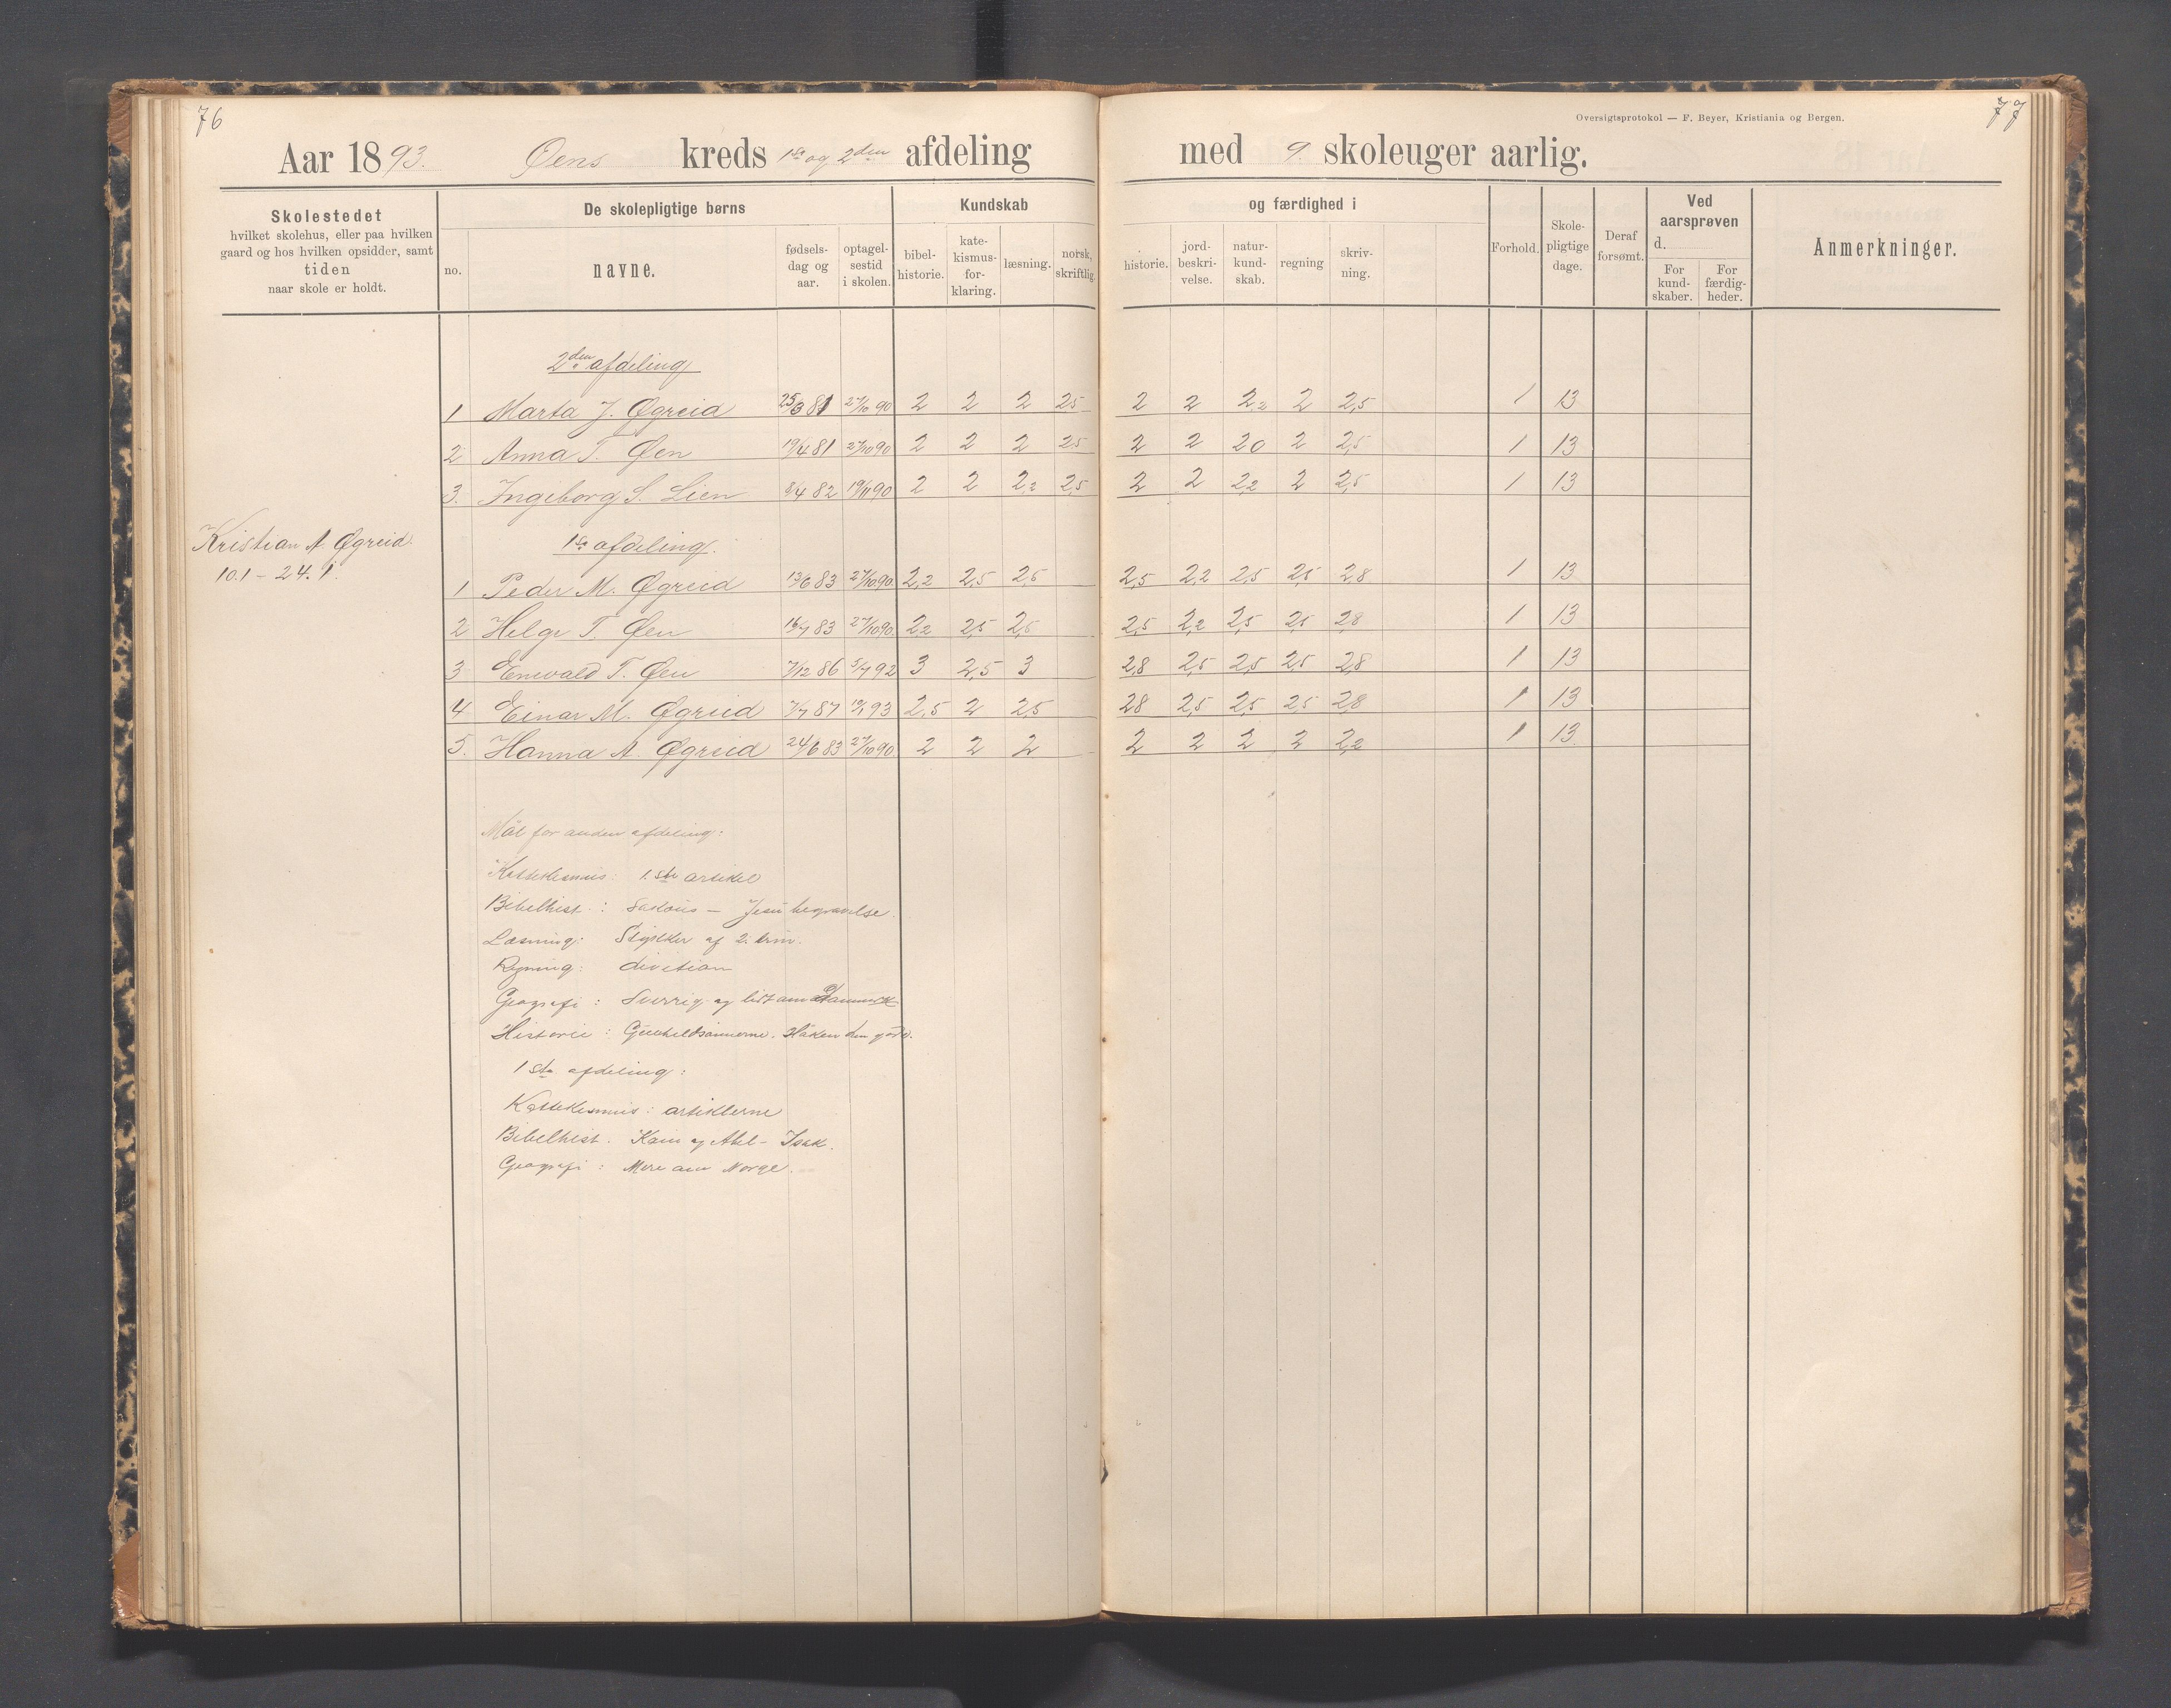 76
77
Oversigtsprotokol — F. Beyer, Kristiania og Bergen.
Aar 1893. Øens kreds 1ste og 2den afdeling med 9. skoleuger aarlig.
Skolestedet
hvilket skolehus, eller paa hvilken
gaard og hos hvilken opsidder, samt
tiden
naar skole er holdt.
De skolepligtige børns
no.
navne.
fødsels-
dag og
aar.
optagel-
sestid
i skolen.
Kundskab
bibel-
historie.
kate-
kismus-
for-
klaring.
læsning.
norsk,
skriftlig.
og færdighed i
historie.
jord-
beskri-
velse.
natur-
kund-
skab.
regning
skriv-
ning.
Forhold.
Skole-
pligtige
dage.
Deraf
forsømt.
Ved
aarsprøven
d.
For
kund-
skaber.
For
færdig-
heder.
Anmerkninger.
2den afdeling
1 Marta J. Øgreid 25/3 81 27/10 90 2 2 2 2,5 2 2 2,2 2 2,5 1 13
2 Anna T. Øen 19/4 81 27/10 90 2 2 2 2,5 2 2 2,0 2 2,5 1 13
3. Ingeborg S. Lien 8/4 82 19/11 90 2 2 2,2 2,5 2 2 2,2 2 2,5 1 13
Kristian A. Øgreid.
10.1 - 24.1.
1ste afdeling.
1 Peder M. Øgreid 13/6 83 27/10 90 2,2 2,5 2,5 2,5 2,2 2,5 2,5 2,8 1 13
2 Helge T. Øen 16/7 83 27/10 90. 2,2 2,5 2,5 2,5 2,2 2,5 2,5 2,8 1 13
3 Enevald T. Øen 7/12 86 5/7 92 3 2,5 3 2,8 2,5 2,5 2,5 2,8 1 13
4 Einar M. Øgreid 7/7 87 10/1 93 2,5 2 2,5 2,8 2,5 2,5 2,5 2,8 1 13
5. Hanna A. Øgreid 24/6 83 27/10 90. 2 2 2 2 2 2 2 2,2 1 13.
Mål for anden afdeling:
Kattekismus: 1.ste artikel
Bibelhist.: Sakæus - Jesu begravelse.
Læsning: Stykker af 2. trin.
Regning: division
Geografi: Sverrig og lidt om Danmark
Historie: Gunhildsønnerne. Håkon den gode.
1ste afdeling:
Kattekismus: artiklerne
Bibelhist. Kain og Abel - Isak.
Geografi: Mere om Norge.